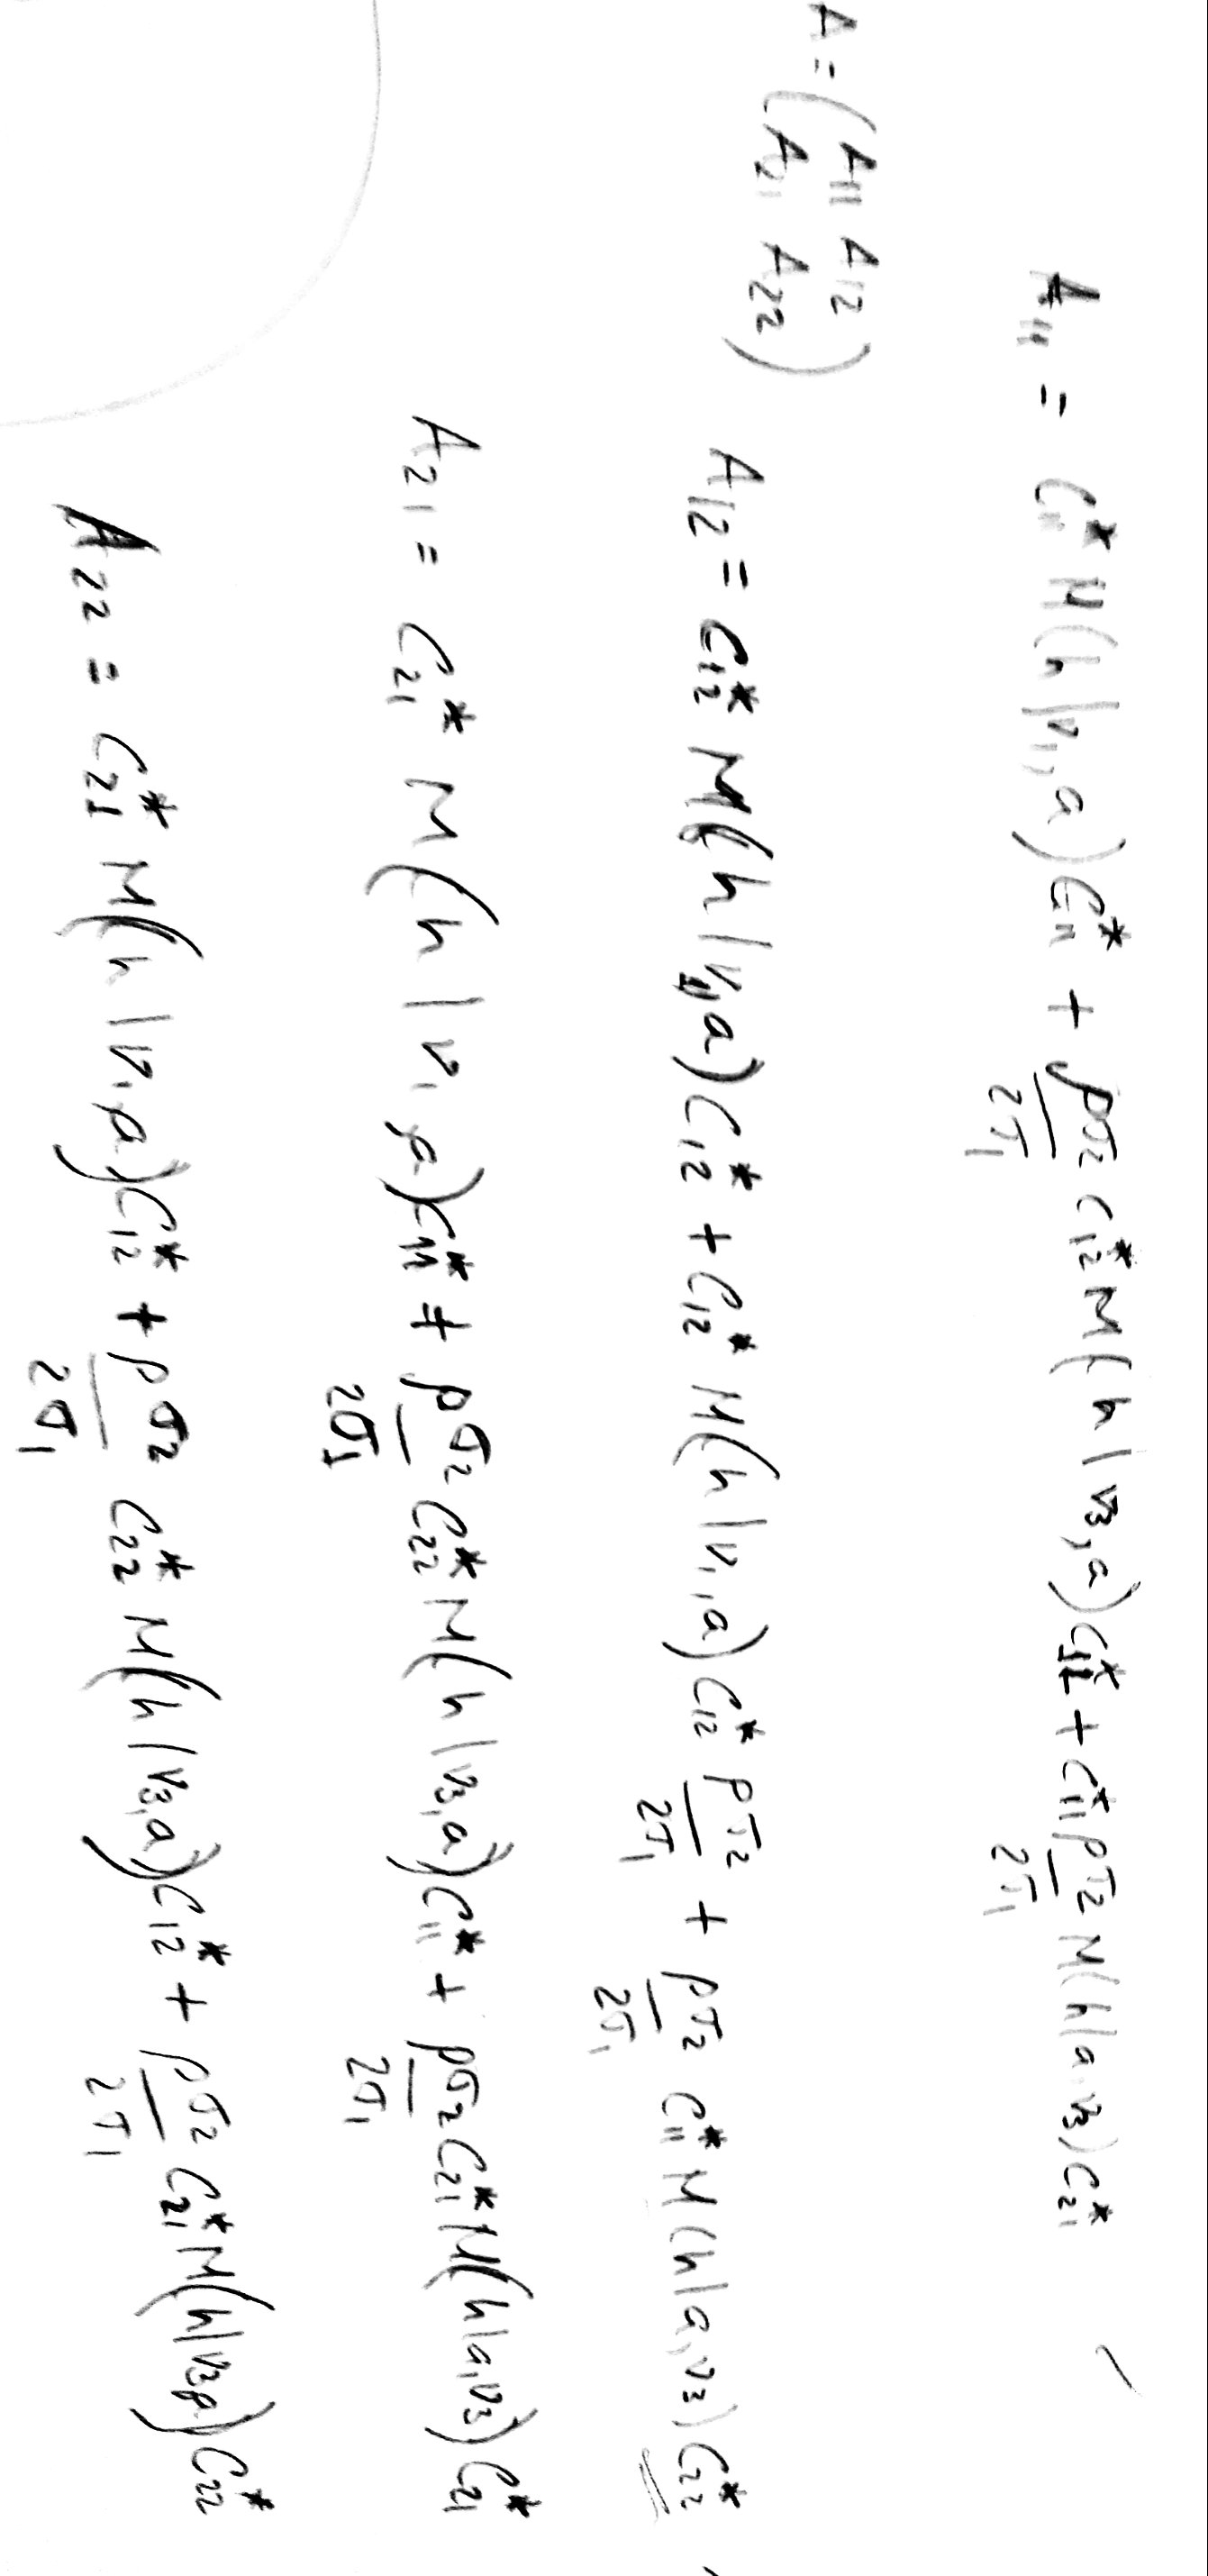 A = ( A11 A12
A21 A22 )
A11 = C11* M(h|ν1,a) C11* + ρσ2/2σ1 C12* M(h|ν3,a) C11* + C11* ρσ2/2σ1 M(h|a,ν3) C21*
A12 = C12* M(h|ν1,a) C12* + C12* M(h|ν1,a) C12* ρσ2/2σ1 + ρσ2/2σ1 C11* M(h|a,ν3) C22*
A21 = C21* M(h|ν1,a) C11* + ρσ2/2σ1 C22* M(h|ν3,a) C11* + ρσ2/2σ1 C21* M(h|a,ν3) C21*
A22 = C21* M(h|ν1,a) C12* + ρσ2/2σ1 C22* M(h|ν3,a) C12* + ρσ2/2σ1 C21* M(h|ν3,a) C22*